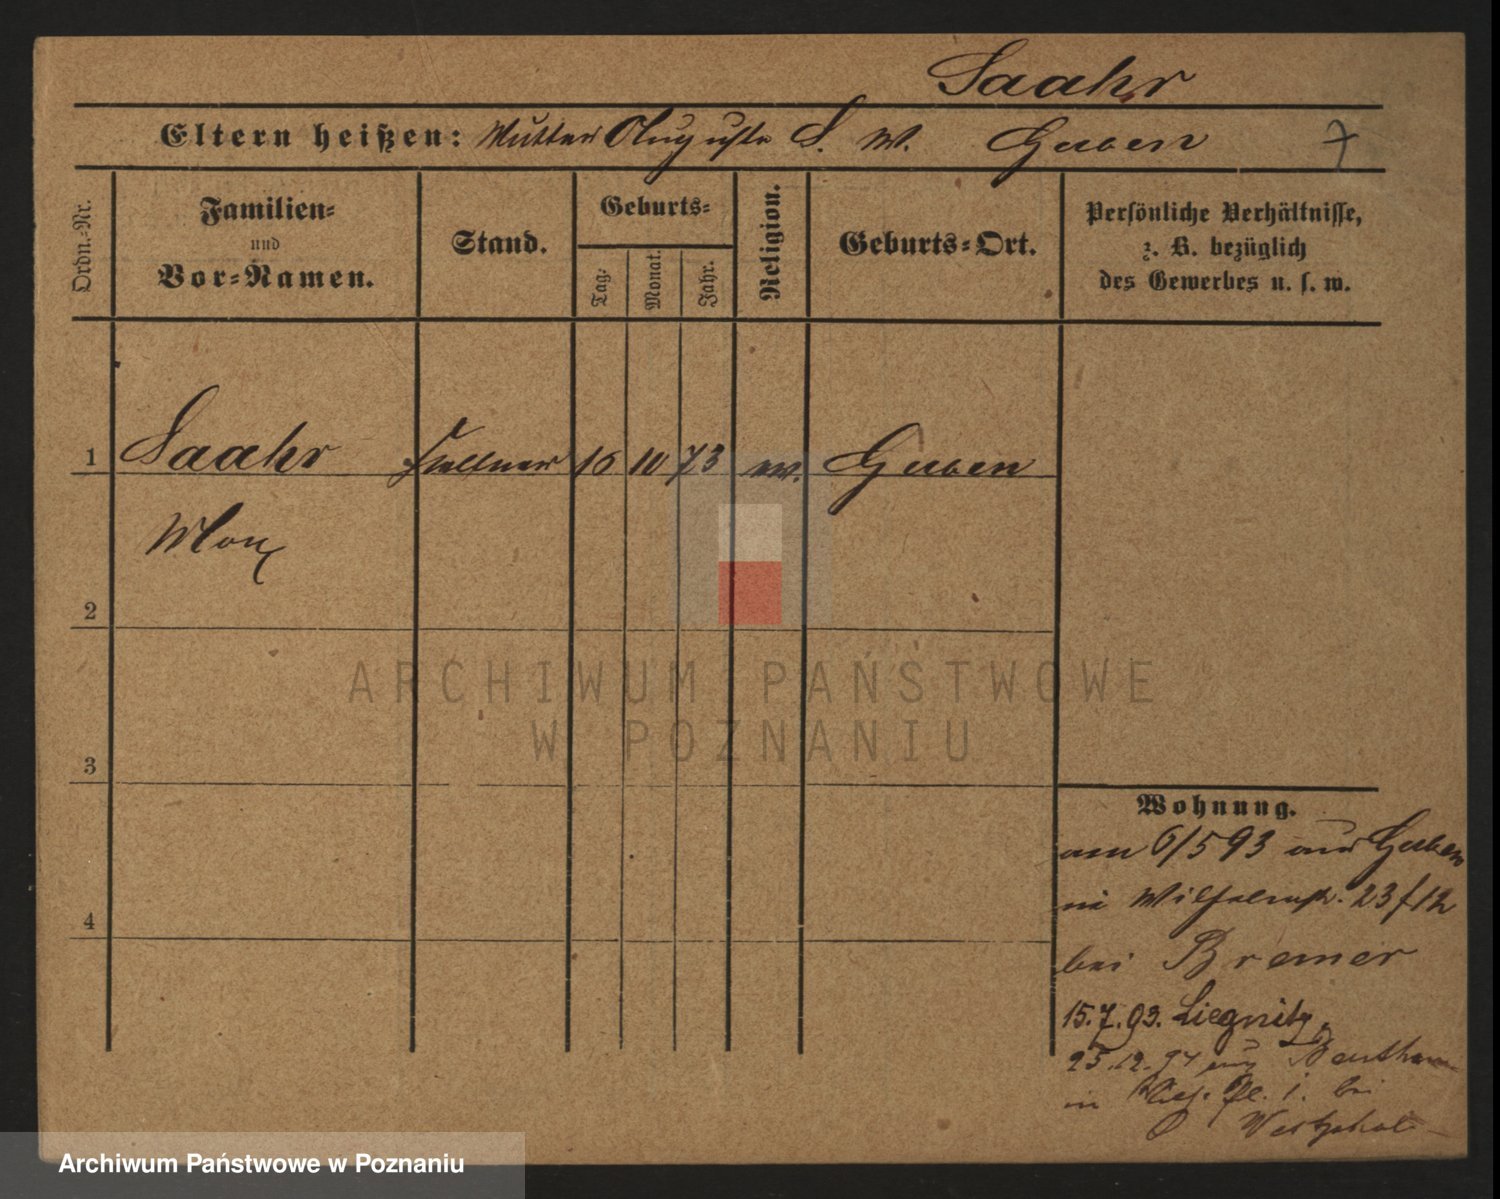 Saahr
Eltern heißen: Mutter Auguste S. w. Guben
Ordn.-Nr.
Familien-
und
Vor-Namen.
Stand.
Geburts-
Tag.
Monat.
Jahr.
Religion.
Geburts-Ort.
Persönliche Verhältnisse,
z. B. bezüglich
des Gewerbes u. s. w.
1 Saahr Kellner 16 10 73 Guben
Max
2
3
4
Wohnung.
am 6/5 93 aus Guben
in Wilhelmstr. 23
bei Bremer
15.7.93. Liegnitz.
25.12.97 aus Beuthen
in Wilh. Pl. 1. bei
ARCHIWUM PAŃSTWOWE
W POZNANIU
Archiwum Państwowe w Poznaniu